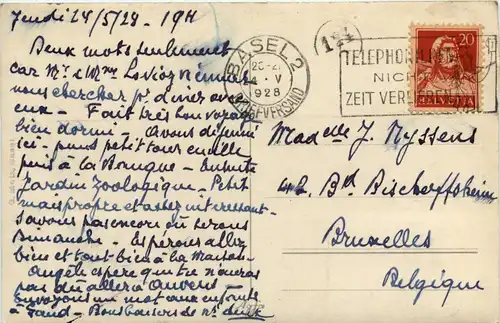 Jeudi 24/5/28 - 19H
Deux mots seulement
car Mr. & Mme
nous chercher pr. dîner avec
eux - Fait très bon voyage
bien dormi - Avons déjeuné
ici - puis petit tour en ville
puis à la Banque - Ensuite
Jardin Zoologique - Petit
mais propre et assez intéressant -
Savons pas encore où serons
Dimanche - Espérons allez
bien et tout bien à la maison -
Angèle espère que
pas dû aller à Anvers -
Envoyons un mot aux enfants
à Gand - Bons baisers de ns. deux
BASEL 2
24. V
1928
BRIEFVERSAND
TELEPHONIEREN
NICHT
ZEIT VERLIEREN
20
HELVETIA
Madelle J. Nyssens
42, Bd. Bischoffsheim
Bruxelles
Belgique